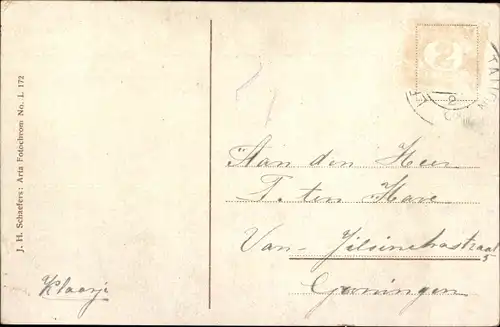 J. H. Schaefers: Arta Fotochrom No. L 172
Klaasje
Aan den Heer
T. ten Have
Van-
5
Groningen
2